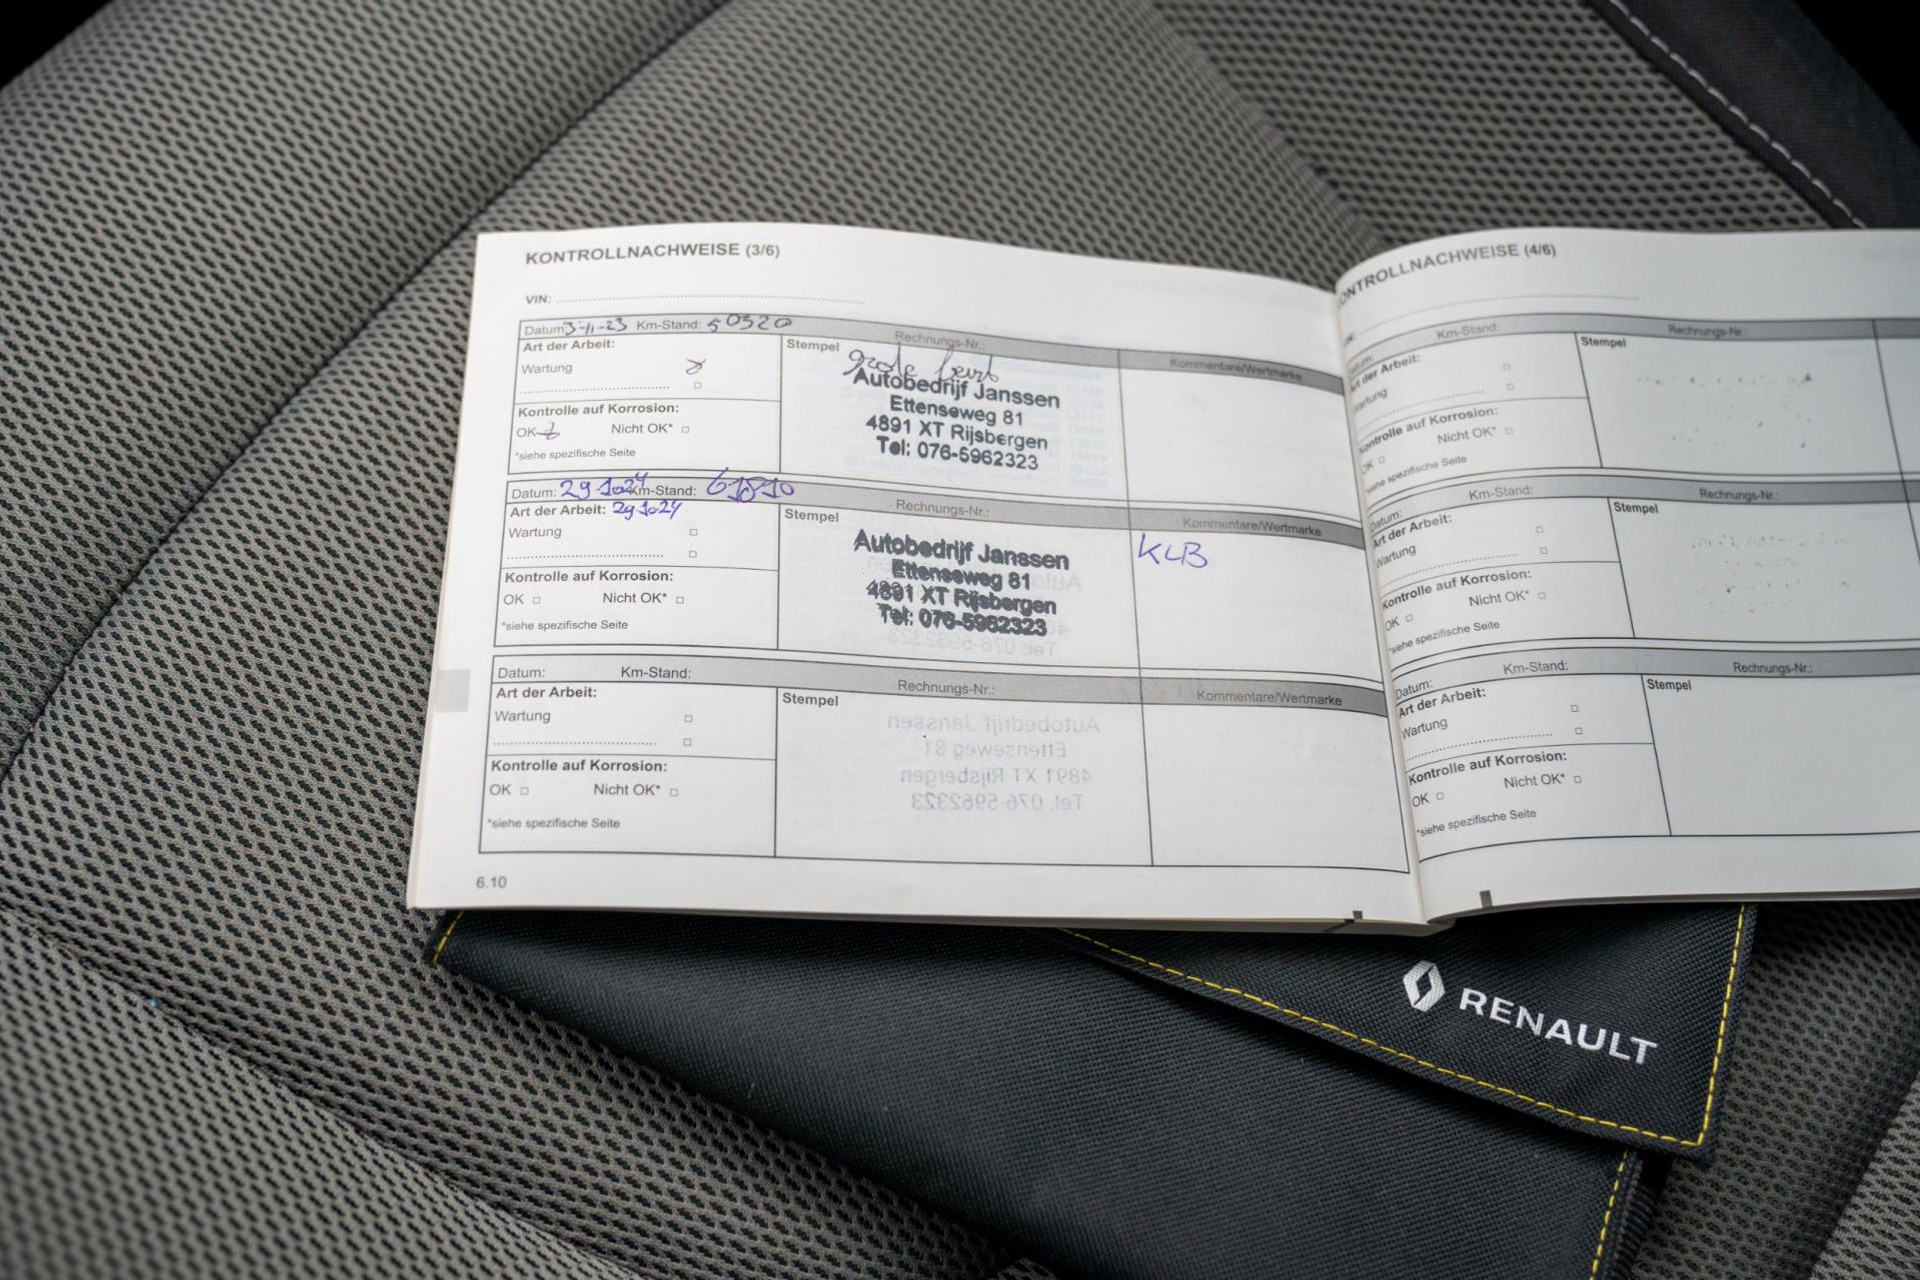 KONTROLLNACHWEISE (3/6)
VIN:
Datum: 3-11-23 Km-Stand: 50320 Rechnungs-Nr.: Kommentare/Wertmarke
Art der Arbeit:
Wartung
Kontrolle auf Korrosion:
OK Nicht OK*
*siehe spezifische Seite
Stempel
grote beurt
Autobedrijf Janssen
Ettenseweg 81
4891 XT Rijsbergen
Tel: 076-5962323
Datum: 29-1024 Km-Stand: 61810 Rechnungs-Nr.: Kommentare/Wertmarke
Art der Arbeit: 29-1024
Wartung
Kontrolle auf Korrosion:
OK Nicht OK*
*siehe spezifische Seite
Stempel
Autobedrijf Janssen
Ettenseweg 81
4891 XT Rijsbergen
Tel: 076-5962323
KLB
Datum: Km-Stand: Rechnungs-Nr.: Kommentare/Wertmarke
Art der Arbeit:
Wartung
Kontrolle auf Korrosion:
OK Nicht OK*
*siehe spezifische Seite
Stempel
6.10
ONTROLLNACHWEISE (4/6)
Km-Stand: Rechnungs-Nr.:
Art der Arbeit:
Wartung
Kontrolle auf Korrosion:
OK Nicht OK*
*siehe spezifische Seite
Stempel
Datum: Km-Stand: Rechnungs-Nr.:
Art der Arbeit:
Wartung
Kontrolle auf Korrosion:
OK Nicht OK*
*siehe spezifische Seite
Stempel
Datum: Km-Stand: Rechnungs-Nr.:
Art der Arbeit:
Wartung
Kontrolle auf Korrosion:
OK Nicht OK*
*siehe spezifische Seite
Stempel
RENAULT